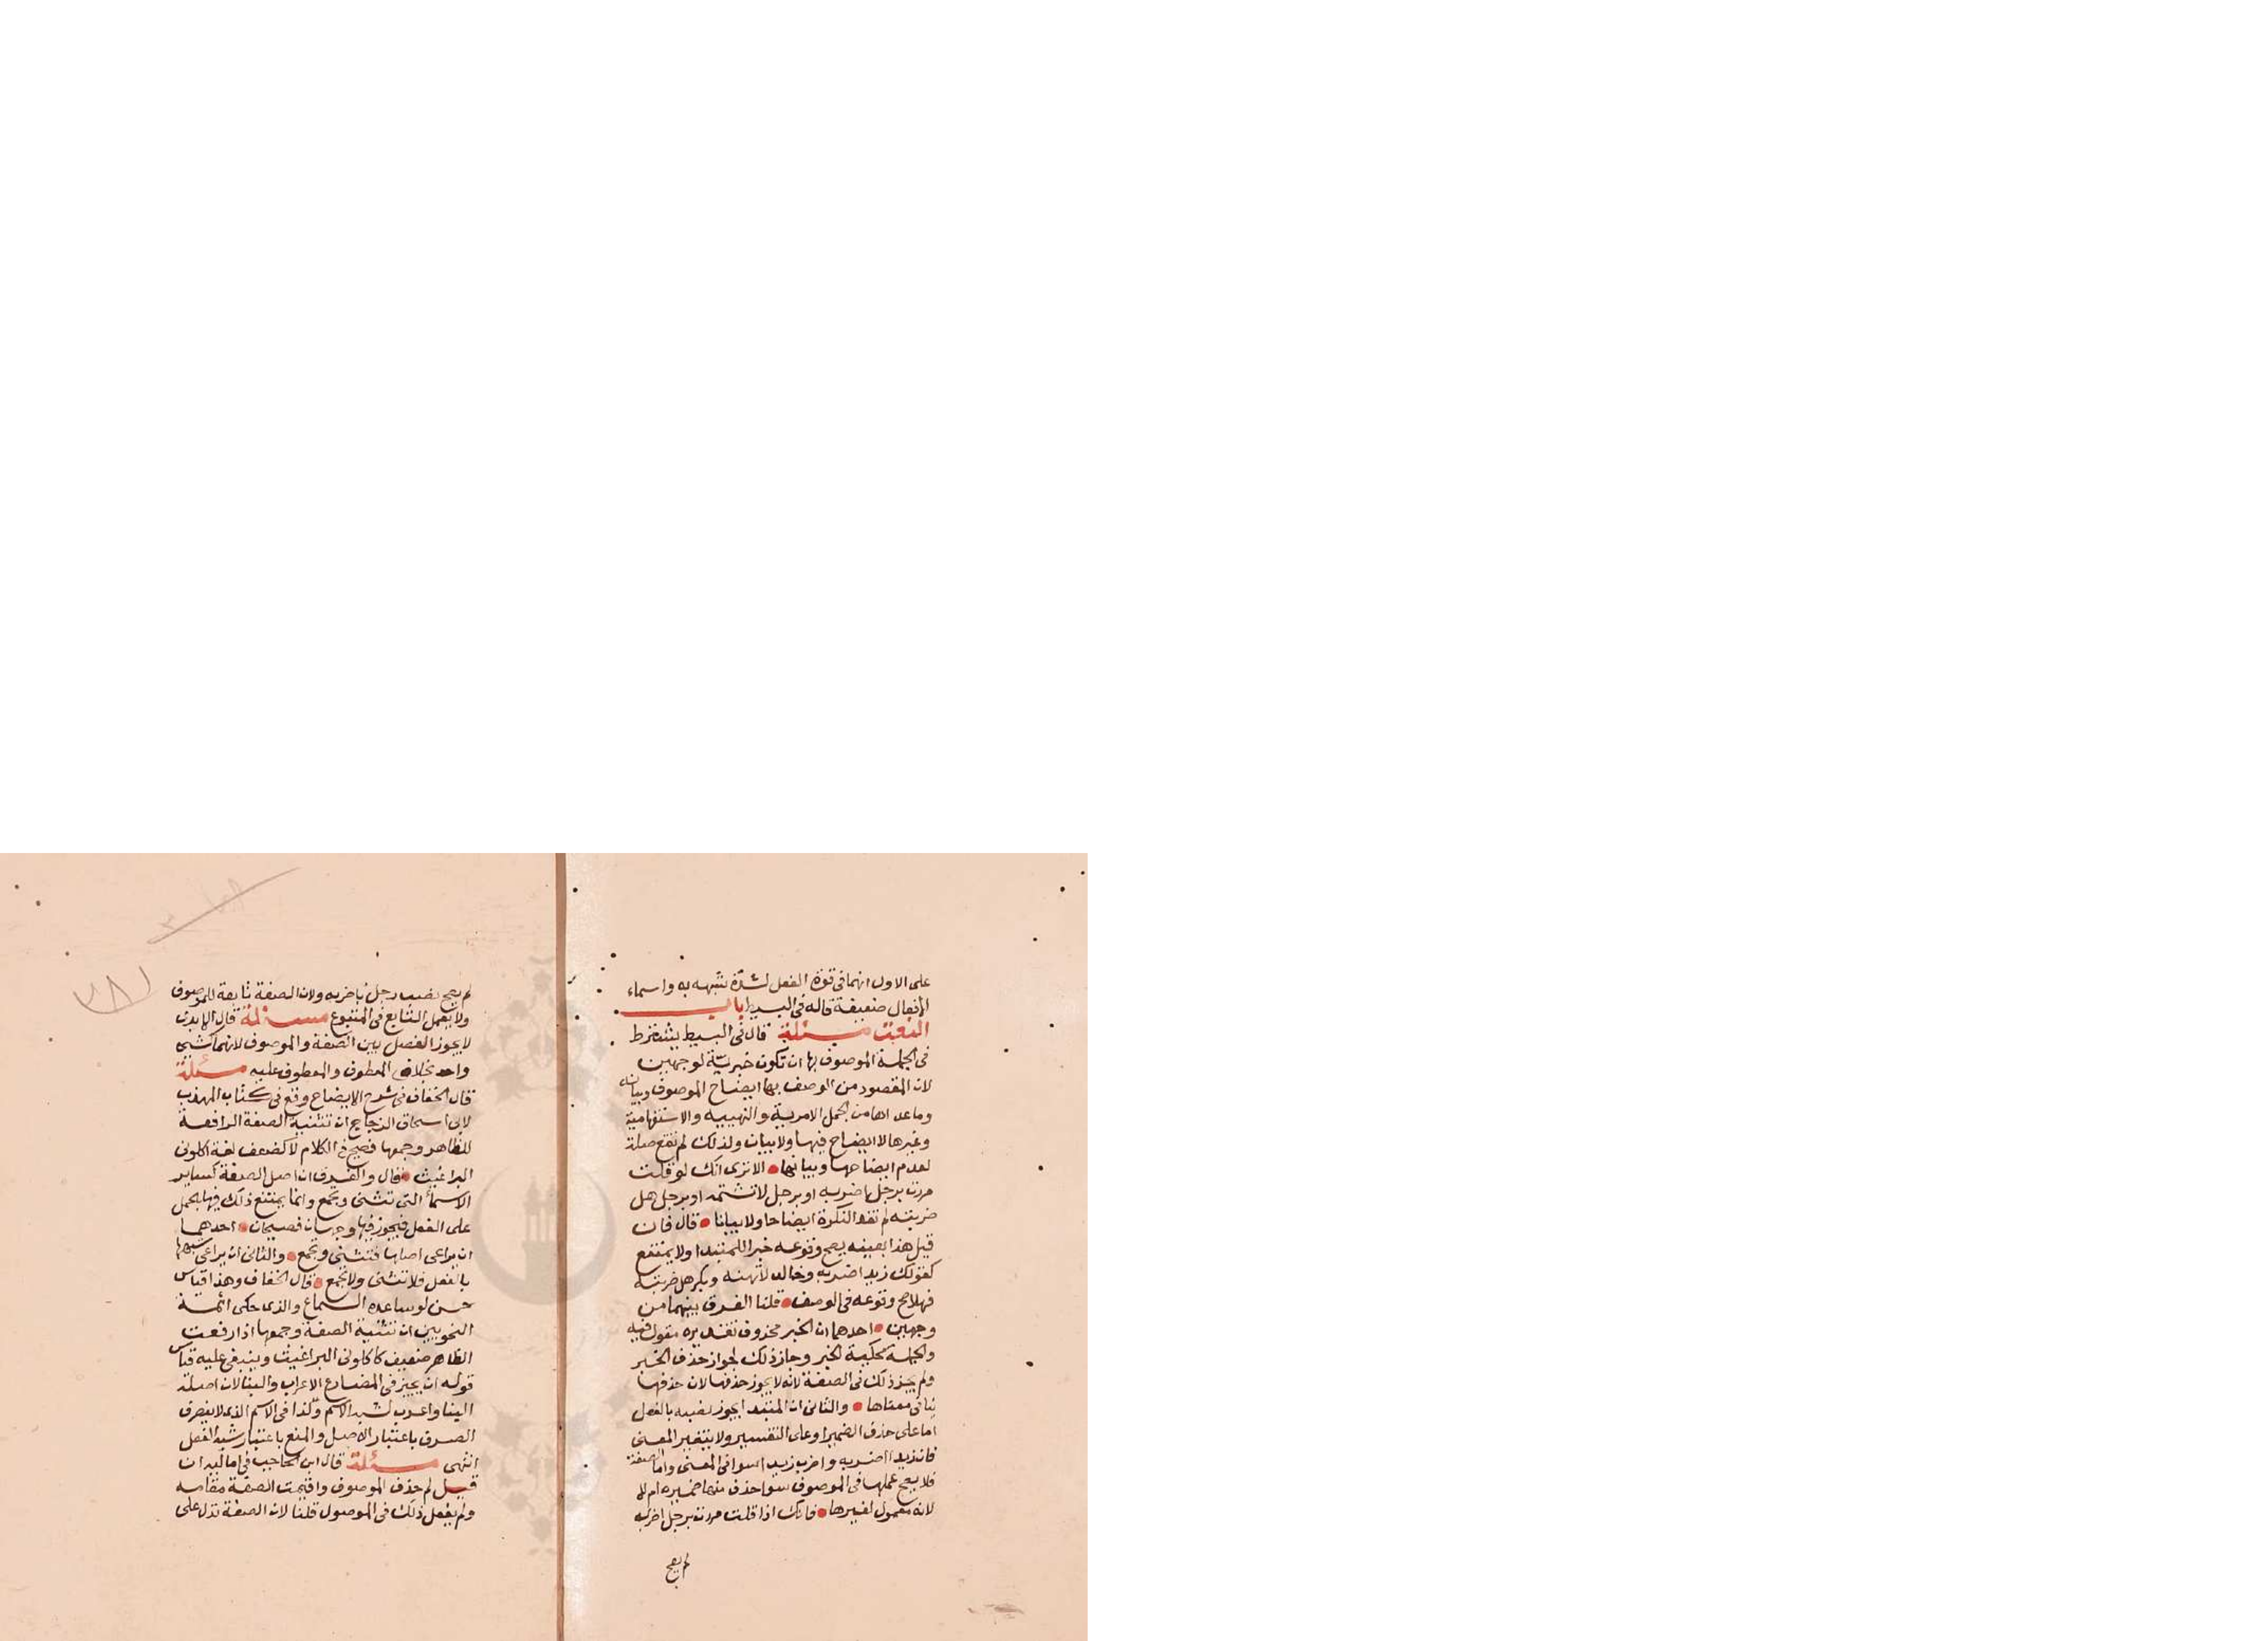 على الاول انهما في قوة الفعل لشدة شبهه به واسماء
الافعال ضعيفة قاله في البسيط باب
النعت مسئلة قال في البسيط يشترط
في الجملة الموصوف بها ان تكون خبرية لوجهين
لان المقصود من الوصف بها ايضاح الموصوف وبيانه
وما عداها من الجمل الامرية والنهيية والاستفهامية
وغيرها لا ايضاح فيها ولا بيان ولذلك لم تقع صلة
لعدم ايضاحها وبيانها الا ترى انك لو قلت
مررت برجل اضربه او برجل لا تشتمه او برجل هل
ضربته لم تفد النكرة ايضاحا ولا بيانا قال فان
قيل هذا بعينه يصح وقوعه خبرا للمبتدا ولا يمتنع
كقولك زيد اضربه وخالد لا تهنه وبكر هل ضربته
فهلا صح وقوعه في الوصف قلنا الفرق بينهما من
وجهين احدهما ان الخبر محذوف تقديره مقول فيه
والجملة محكية الخبر وجاز ذلك لجواز حذف الخبر
ولم يجز ذلك في الصفة لانه لا يجوز حذفها لان حذفها
ينافي معناها والثاني ان المبتدا يجوز نصبه بالفعل
اما على حذف الضمير او على التفسير ولا يتغير المعنى
فان زيدا اضربه واضرب زيدا سوا في المعنى واما الصفة
فلا يصح عملها في الموصوف سوا حذف منها ضميره ام لا
لانه معمول لغيرها فانك اذا قلت مررت برجل اضربه
لم يصح
لم يصح نصب رجل باضربه ولان الصفة تابعة للموصوف
ولا يعمل التابع في المتبوع مسئلة قال الابدى
لا يجوز الفصل بين الصفة والموصوف لانهما كشئ
واحد بخلاف المعطوف والمعطوف عليه مسئلة
قال الخفاف في شرح الايضاح وقع في كتاب المهذب
لابى اسحاق الزجاج ان تثنية الصفة الرافعة
للظاهر وجمعها فصيح في الكلام لا كضعف لغة اكلونى
البراغيث قال والفرق ان اصل الصفة كساير
الاسماء التى تثنى وتجمع وانما يمتنع ذلك فيها بالحمل
على الفعل فيجوز فيها وجهان فصيحان احدهما
ان يراعى اصلها فتثنى وتجمع والثانى ان يراعى شبهها
بالفعل فلا تثنى ولا تجمع قال الخفاف وهذا قياس
حسن لو ساعده السماع والذى حكى ائمة
النحويين ان تثنية الصفة وجمعها اذا رفعت
الظاهر ضعيف كاكلونى البراغيث وينبغى على قياس
قوله ان يجيز في المضارع الاعراب والبنا لان اصله
البنا واعرب لشبه الاسم وكذا في الاسم الذى لا ينصرف
الصرف باعتبار الاصل والمنع باعتبار شبه الفعل
انتهى مسئلة قال ابن الحاجب في اماليه ان
قيل لم حذف الموصوف واقيمت الصفة مقامه
ولم يفعل ذلك في الموصول قلنا لان الصفة تدل على